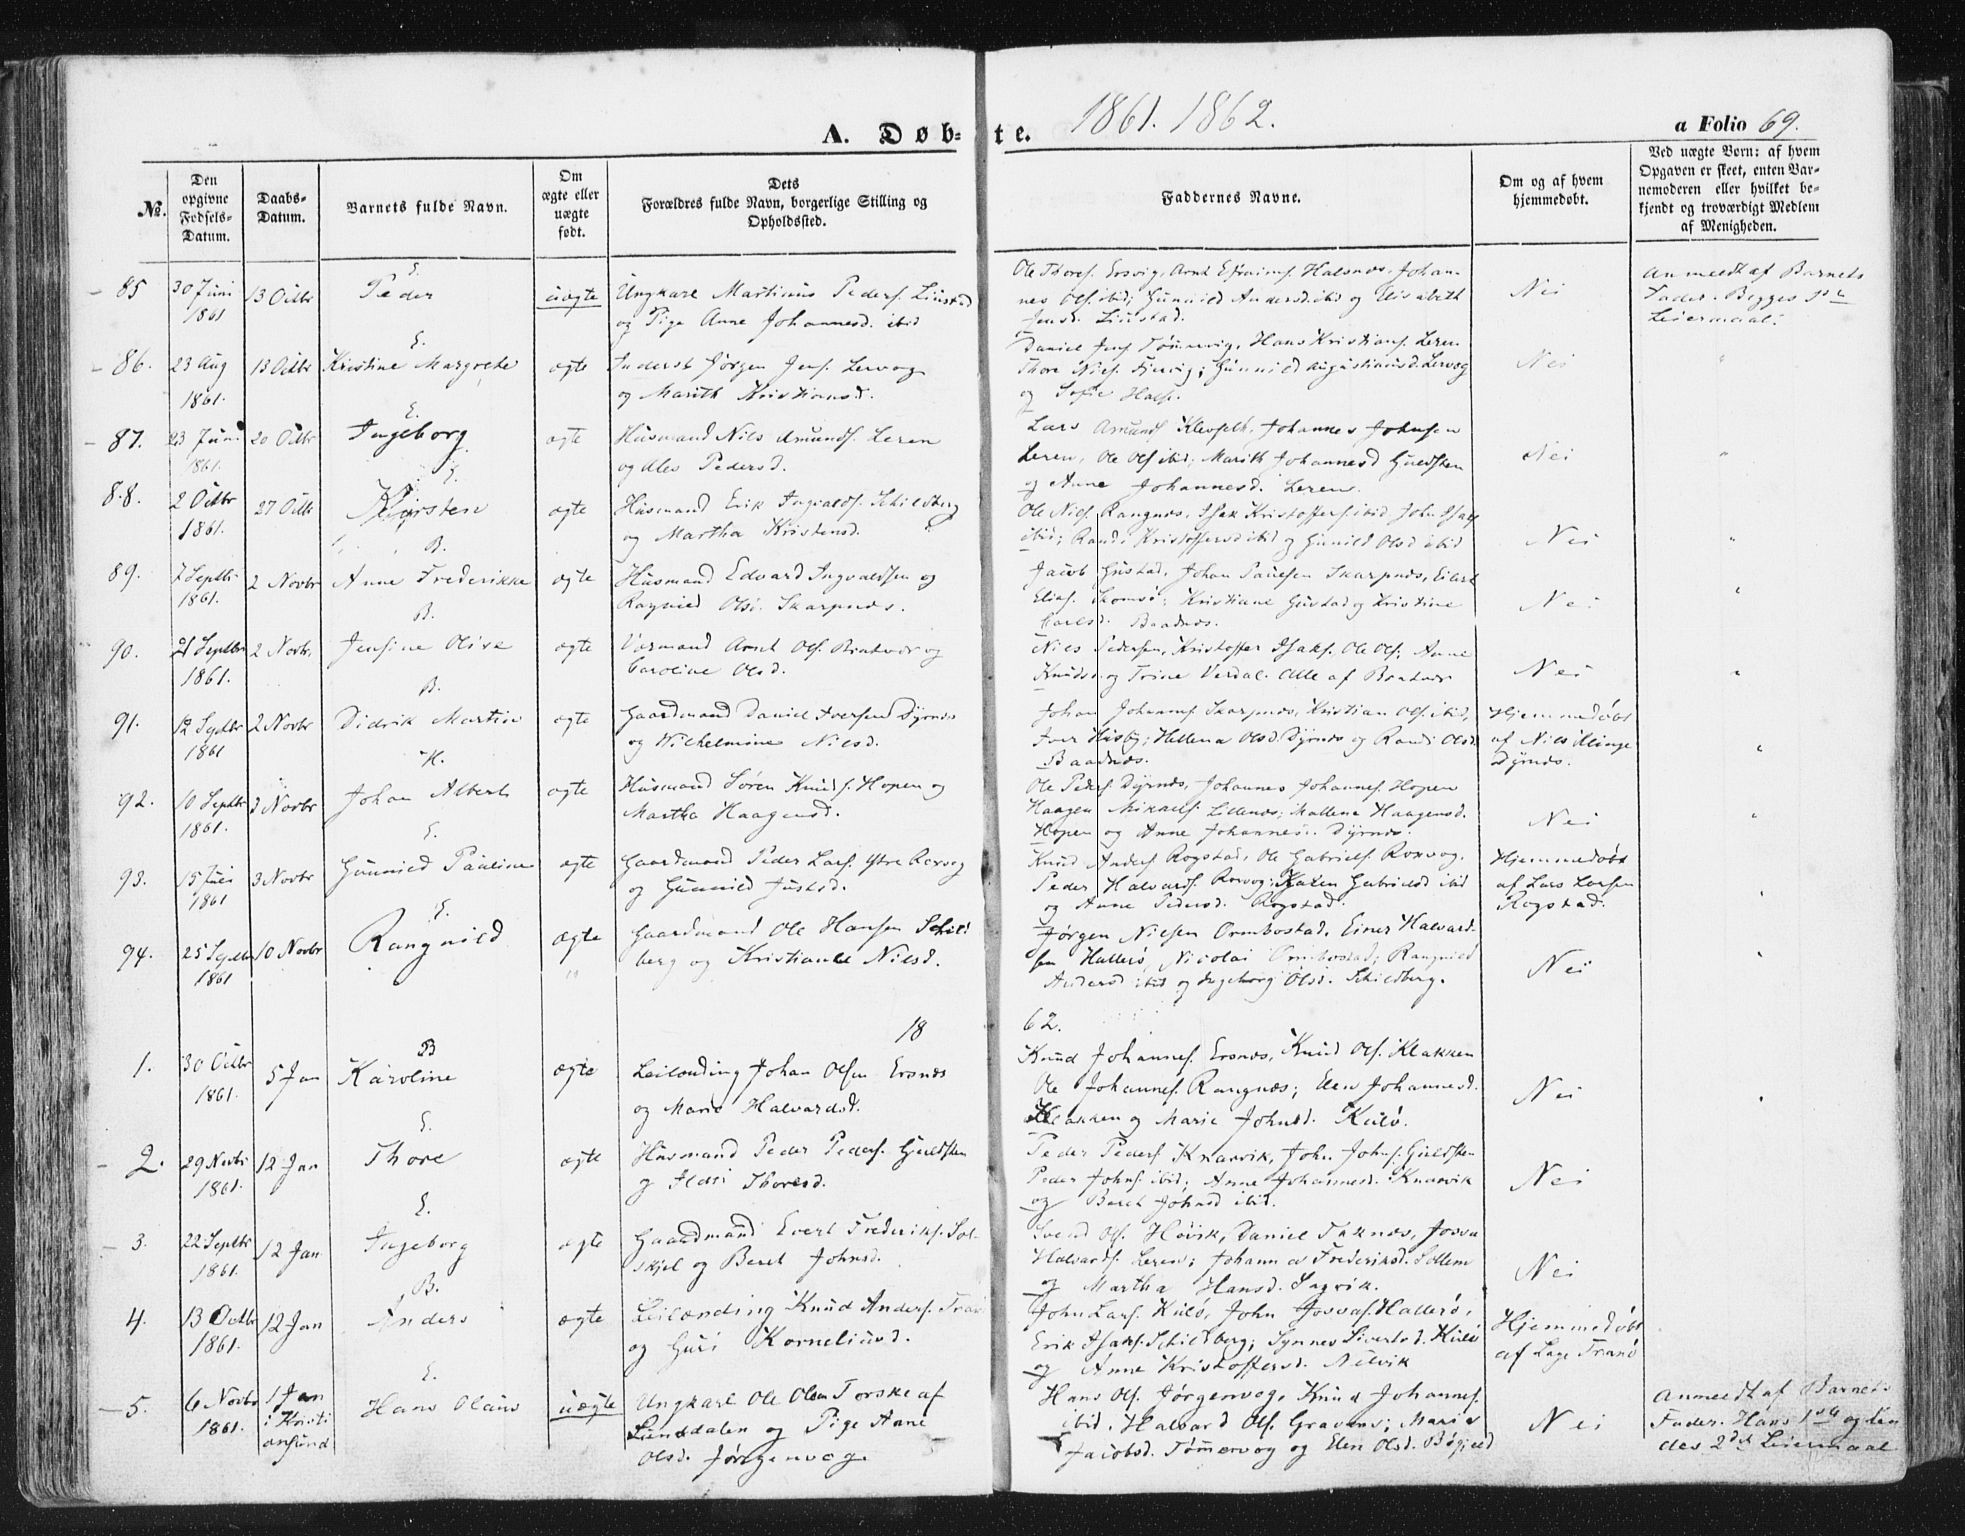 A. Døbte. 1861. 1862. a Folio 69.
No. | Den opgivne Fødsels-Datum. | Daabs-Datum. | Barnets fulde Navn. | Om ægte eller uægte født. | Dets Forældres fulde Navn, borgerlige Stilling og Opholdssted. | Faddernes Navne. | Om og af hvem hjemmedøbt. | Ved uægte Børn: af hvem Opgaven er skeet, enten Barnemoderen eller hvilket bekjendt og troværdigt Medlem af Menigheden.
85 30 Juni 1861 13 Octbr E. Peder uægte
Ungkarl Martinus Peders. Liustad
og Pige Anne Johannesd. ibid
Ole Thores. Ersvig, Arnt Efraims. Halsnæs, Johan-
nes Ols. ibid; Gunnild Andersd. ibid og Elisabeth
Jensd. Liustad.
Nei
Anmeldt af Barnets
Fader. Begges 1ste
Leiermaal.
86. 23 Aug 1861. 13 Octbr E. Kristine Margrethe ægte
Inderst Jørgen Jens. Lervog
og Marith Kristiansd.
Daniel Jens. Tømmervig, Hans Kristians. Leren
Thore Niels. ; Gunnild Augustinusd. Lervog
og Sofie Hals.
Nei "
87. 23 Juni 1861. 20 Octbr E. Ingeborg ægte
Husmand Nils Amunds. Leren
og Ales Pedersd.
Lars Amunds. , Johannes Johnsen
Leren, Ole Ols. ibid; Marith Johannesd Guldsten
og Anne Johannesd. Leren.
Nei "
88. 2 Octbr 1861. 27 Octb E. Kirsten ægte
Husmand Erik Ingvalds. Schildberg
og Martha Kristensd.
Ole Niels. Rangnæs, Isak Kristoffers. ibid, John Isaks.
ibid; Randi Kristoffersd ibid og Gunild Olsd ibid
Nei "
89. 7 Septbr 1861. 2 Novbr B. Anne Frederikke ægte
Husmand Edvard Ingvaldsen og
Ragnild Olsd. Skarpnæs.
Jacob Gustad, Johan Paulsen Skarpnæs, Eilert
Elias. Skomsø; Kristiane Gustad og Kristine
Carlsd. Baadnæs.
Nei "
90. 21 Septbr 1861. 2 Novbr. B. Jensine Olive ægte
Husmand Arnt Ols. Bratvær og
Caroline Olsd.
Nils Pedersen, Kristoffer Isaks. Ole Ols; Anne
Knudsd. og Trine Verdal. Alle af Bratvær
Nei "
91. 12 Septbr 1861 2 Novbr B. Didrik Martin ægte
Gaardmand Daniel Iversen Dyrnæs
og Wilhelmine Nilsd.
Johan Johannes. Skarpnæs, Kristian Ols. ibid,
Iver Husby; Hellena Olsd. Dyrnæs og Randi Olsd.
Baadnæs.
Hjemmedøbt
af Nils Klinge
Dyrnæs.
"
92. 10 Septbr 1861. 3 Novbr H. Johan Albert ægte
Husmand Søren Knuds. Hopen og
Martha Haagensd.
Ole Peders. Dyrnæs, Johannes Johannes. Hopen
Haagen Mikaels. Lillenæs; Mallena Haagensd.
Hopen og Anne Johannesd. Dyrnæs.
Nei "
93. 15 Juli 1861 3 Novbr E. Gunnild Pauline ægte
Gaardmand Peder Lars. Ytre Roxvog
og Gunnild Justsd.
Knud Anders. Rogstad, Ole Gabriels. Roxvog.
Peder Halvards. Roxvog; Karen Gabrielsd ibid
og Anne Pedersd. Rogstad.
Hjemmedøbt
af Lars Larsen
Rogstad.
"
94. 25 Septbr 1861 10 Novbr E. Rangnild ægte
Gaardmand Ole Hansen Schild
berg og Kristianna Nilsd.
Jørgen Nielsen Ormbostad, Einer Halvard-
sen Hallerø, Nicolai Ormbostad; Rangnild
Andersd ibid og Ingeborg Olsd. Schildberg.
Nei "
1862.
1. 30 Octbr 1861. 5 Jan B Karoline ægte
Leilending Johan Olsen Ersnæs
og Marie Halvardsd.
Knud Johannes. Ersnæs, Knud Ols. Klakken
Ole Johannes. Rangnæs; Elen Johannesd.
Klakken og Marie Johnsd. Kulø.
Nei "
2. 29 Novbr 1861. 12 Jan E. Thore ægte
Husmand Peder Peders. Guldsten
og Thoresd.
Peder Peders. Knarvik, John Johns. Guldsten
Peder Johns. ibid; Anne Johannesd. Knarvik
og Beret Johnsd ibid.
Nei
3. 22 Septbr 1861. 12 Jan E. Ingeborg ægte
Gaardmand Evert Frederiks. Sol-
skjel og Beret Johnsd.
Svend Ols. Høvik, Daniel Taknæs, Josva
Halvards. Leren; Johanna Frederiksd. Sollem
og Martha Hansd. Sagvik.
Nei
4. 13 Octbr 1861. 12 Jan B. Anders ægte
Leilænding Knud Anders. Tranø
og Guri Korneliusd.
John Lars. Kulø, John Josvas. Hallerø,
Erik Isaks. Schildberg; Synnev Sivertsd. Kulø
og Anne Kristoffersd. Nilvik
Hjemmedøbt
af Lage Tranø
5. 6 Novbr 1861. 1 Jan i Kristiansund E. Hans Olaus uægte
Ungkarl Ole Olsen Torske af
Sunddalen og Pige Ane
Olsd. Jørgenvog.
Hans Ols. Jørgenvog, Knud Johannes.
ibid. Halvard Ols. Gravens; Maria
Jacobsd. Tømmervog og Elen Olsd. Bøgjeld
Nei
Anmeldt af Barnets
Fader. Hans 1ste og hen
des 2det Leiermaal